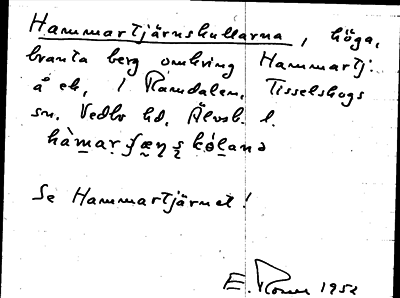 Hammartjärnskullarna, höga,
branta berg omkring Hammartj:
å ek, i Råmdalen, Tisselskogs
sn. Vedbo hd, Älvsb. l.
hàmarʃæṇṣkólanə
Se Hammartjärnet!
E. 1952